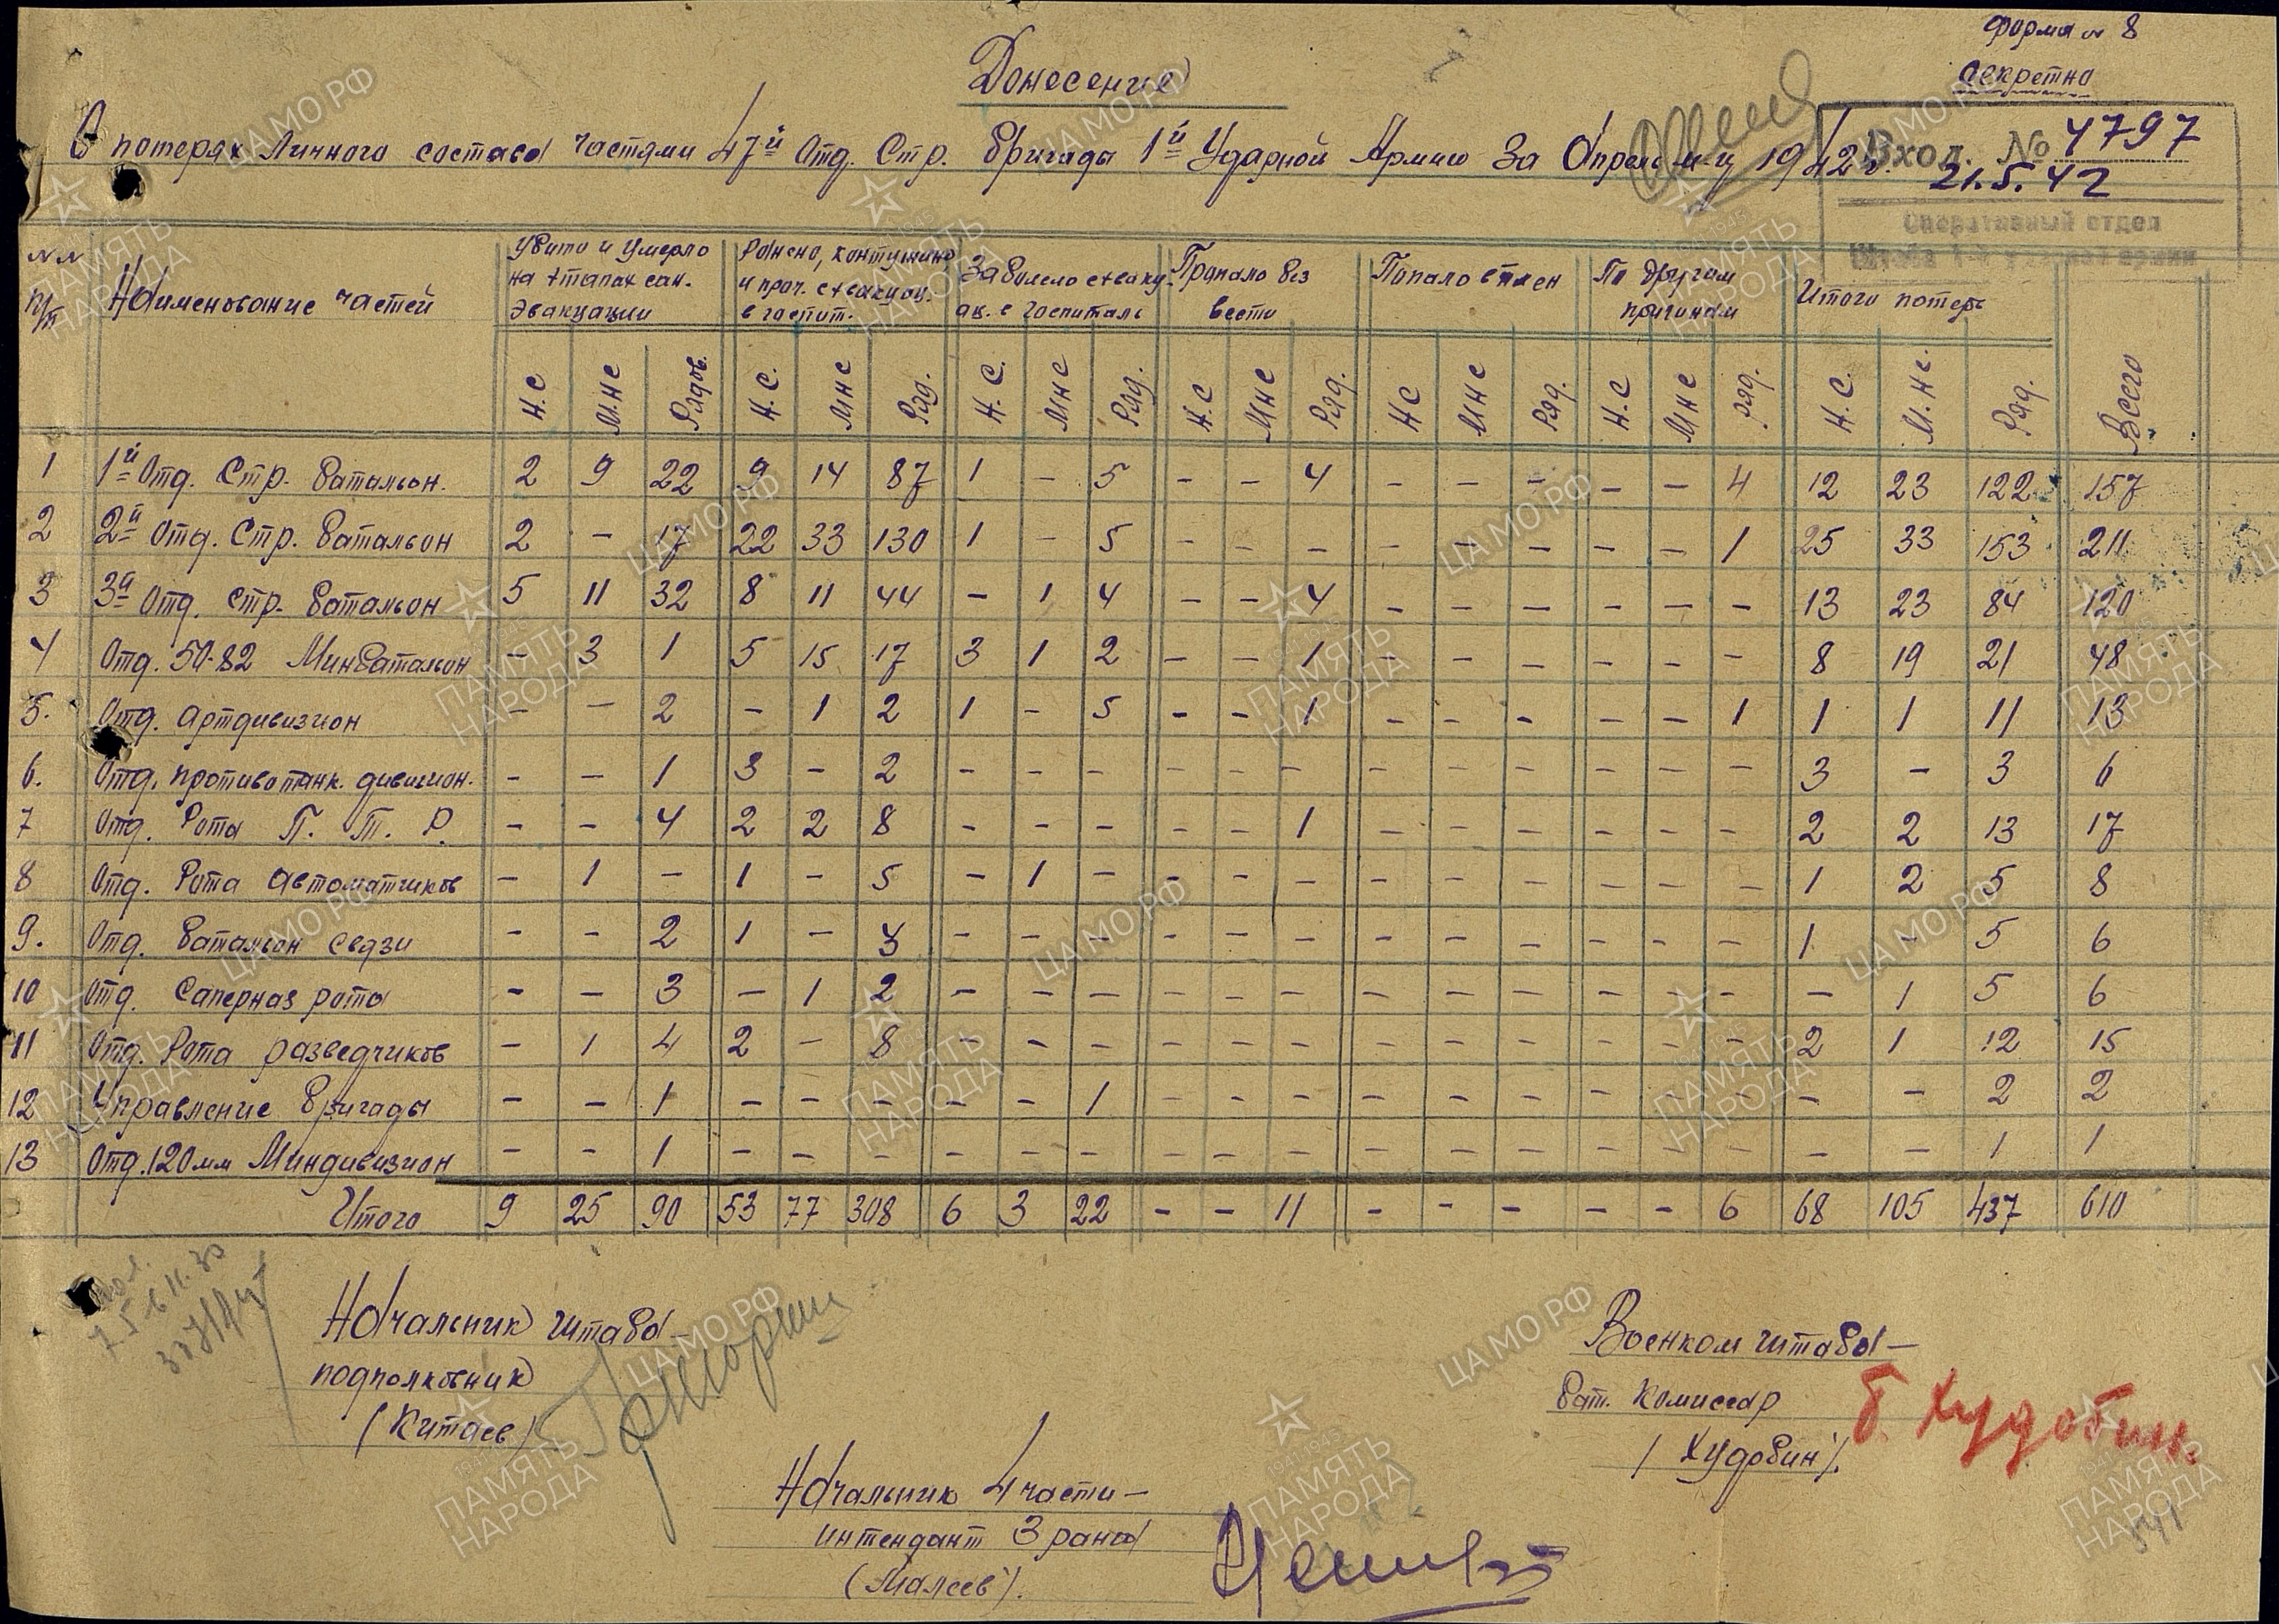 Форма № 8
Секретно
Донесение
О потерях личного состава частями 47й Отд. Стр. бригады 1й Ударной Армии за Апрель м-ц 1942 г.
Вход. № 4797
21.5.42
Оперативный отдел
№№ п/п | Наименование частей | Убито и умерло на этапах сан. эвакуации | Ранено, контужено и проч. с эвакуац. в госпит. | Заболело с эвакуац. в госпиталь | Пропало без вести | Попало в плен | По другим причинам | Итого потерь | Всего
Н.С | М.НС | Рядов. | Н.С. | МНС | Ряд. | Н.С. | МНС | Ряд. | Н.С | МНС | Ряд. | НС | МНС | Ряд. | Н.С | МНС | Ряд. | Н.С. | М.НС. | Ряд.
1 1й Отд. Стр. батальон. 2 9 22 9 14 87 1 - 5 - - 4 - - - - - 4 12 23 122 157
2 2й Отд. Стр. батальон 2 - 17 22 33 130 1 - 5 - - - - - - - - 1 25 33 153 211
3 3й Отд. Стр. батальон 5 11 32 8 11 44 - 1 4 - - 4 - - - - - - 13 23 84 120
4 Отд. 50-82 Минбатальон - 3 1 5 15 17 3 1 2 - - 1 - - - - - - 8 19 21 48
5. Отд. артдивизион - - 2 - 1 2 1 - 5 - - 1 - - - - - 1 1 1 11 13
6. Отд. противотанк. дивизион. - - 1 3 - 2 - - - - - - - - - - - - 3 - 3 6
7 Отд. Рота П. Т. Р. - - 4 2 2 8 - - - - - 1 - - - - - - 2 2 13 17
8 Отд. Рота автоматчиков - 1 - 1 - 5 - 1 - - - - - - - - - - 1 2 5 8
9. Отд. батальон связи - - 2 1 - 3 - - - - - - - - - - - - 1 - 5 6
10 Отд. Саперная рота - - 3 - 1 2 - - - - - - - - - - - - - 1 5 6
11 Отд. Рота разведчиков - 1 4 2 - 8 - - - - - - - - - - - - 2 1 12 15
12 Управление бригады - - 1 - - - - - 1 - - - - - - - - - - - 2 2
13 Отд. 120 мм Миндивизион - - 1 - - - - - - - - - - - - - - - - - 1 1
Итого 9 25 90 53 77 308 6 3 22 - - 11 - - - - - 6 68 105 437 610
Начальник штаба -
подполковник
(Китаев)
Военком штаба -
бат. комиссар
(Худобин).
б. Худобин.
Начальник 4 части -
интендант 3 ранга
(Малеев).
ЦАМО РФ
1941-1945
ПАМЯТЬ
НАРОДА